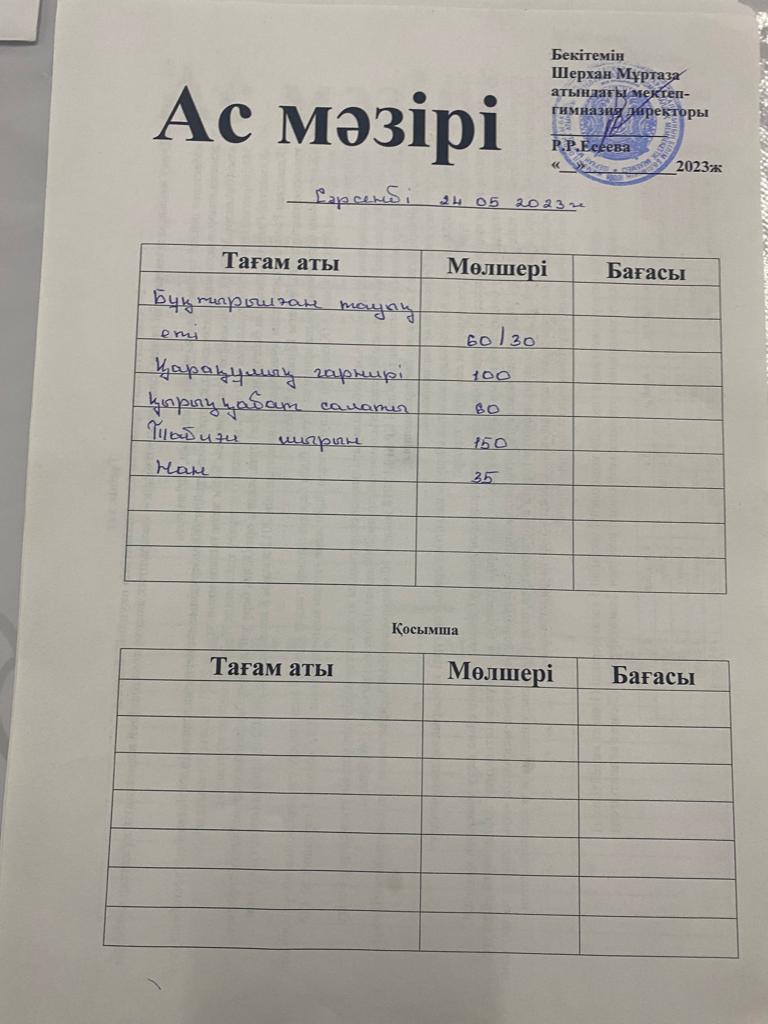 Бекітемін
Шерхан Мұртаза
атындағы мектеп-
гимназия директоры
Р.Р.Есеева
«___»____________2023ж
Ас мәзірі
Сәрсенбі 24 05 2023ж
Тағам аты Мөлшері Бағасы
Бұқтырылған тауық
еті 60/30
Қарақұмық гарнирі 100
Қырыққабат салаты 80
Табиғи шырын 150
Нан 35
Қосымша
Тағам аты Мөлшері Бағасы